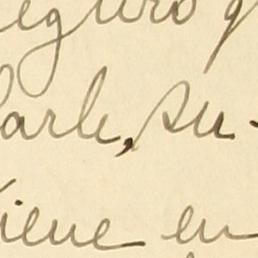 eguro q
arle, su-
iene en